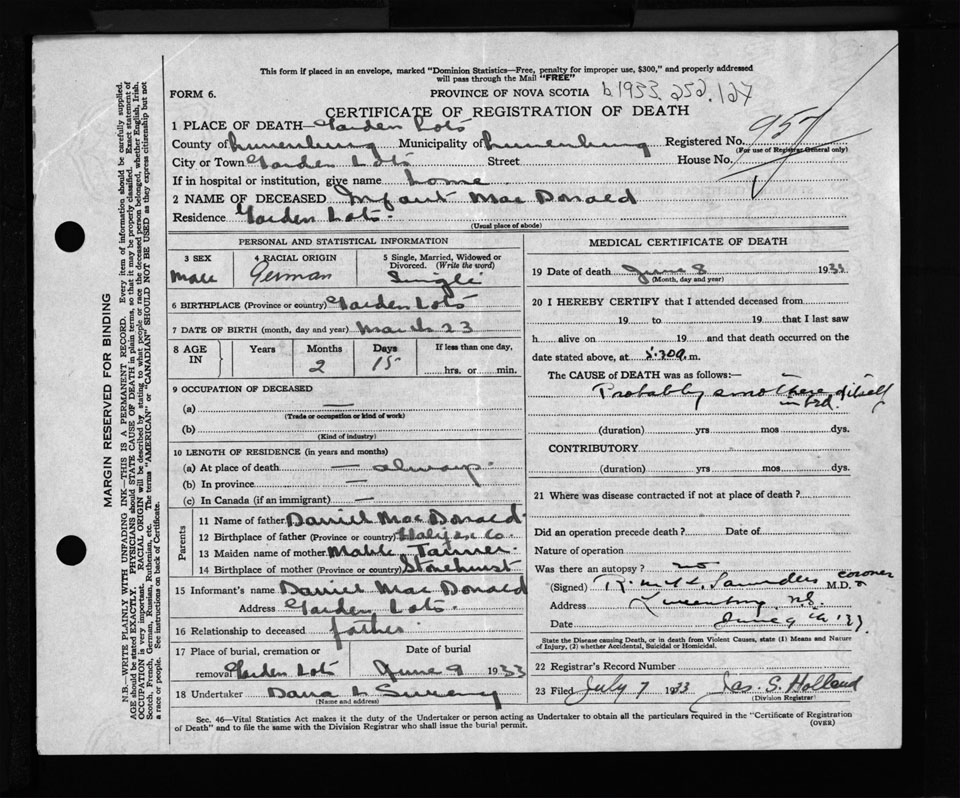 This form if placed in an envelope, marked "Dominion Statistics—Free, penalty for improper use, $300," and properly addressed
will pass through the Mail "FREE"
FORM 6.
PROVINCE OF NOVA SCOTIA b 1933 252.127
CERTIFICATE OF REGISTRATION OF DEATH
1 PLACE OF DEATH— Garden Lots
County of Lunenburg Municipality of Lunenburg Registered No. 957
(For use of Registrar General only)
City or Town Garden Lots Street House No.
If in hospital or institution, give name home
2 NAME OF DECEASED Infant MacDonald
Residence Garden Lots.
(Usual place of abode)
PERSONAL AND STATISTICAL INFORMATION
3 SEX 4 RACIAL ORIGIN 5 Single, Married, Widowed or
Divorced. (Write the word)
Male German Single
6 BIRTHPLACE (Province or country) Garden Lots
7 DATE OF BIRTH (month, day and year) March 23
8 AGE IN Years Months Days If less than one day,
2 15 hrs. or min.
9 OCCUPATION OF DECEASED
(a) —
(Trade or occupation or kind of work)
(b)
(Kind of industry)
10 LENGTH OF RESIDENCE (in years and months)
(a) At place of death — always.
(b) In province —
(c) In Canada (if an immigrant) —
Parents
11 Name of father Daniel MacDonald
12 Birthplace of father (Province or country) Halifax Co.
13 Maiden name of mother Tanner.
14 Birthplace of mother (Province or country) Stonehurst
15 Informant's name Daniel MacDonald
Address Garden Lots.
16 Relationship to deceased father
17 Place of burial, cremation or removal Date of burial
Garden Lots June 9 1933
18 Undertaker Dana L
(Name and address)
MEDICAL CERTIFICATE OF DEATH
19 Date of death June 8 1933
(Month, day and year)
20 I HEREBY CERTIFY that I attended deceased from
19 to 19 that I last saw
h alive on 19 and that death occurred on the
date stated above, at 5.30 a. m.
The CAUSE of DEATH was as follows:—
Probably smothered itself
in bed.
(duration) yrs mos dys.
CONTRIBUTORY
(duration) yrs mos dys.
21 Where was disease contracted if not at place of death?
Did an operation precede death? Date of
Nature of operation
Was there an autopsy? no
(Signed) Saunders M.D. coroner
Address Lunenburg, N.S.
Date June 9
State the Disease causing Death, or in death from Violent Causes, state (1) Means and Nature
of Injury, (2) whether Accidental, Suicidal or Homicidal.
22 Registrar's Record Number
23 Filed July 7 1933 Jas. S. Holland
(Division Registrar)
Sec. 46—Vital Statistics Act makes it the duty of the Undertaker or person acting as Undertaker to obtain all the particulars required in the "Certificate of Registration
of Death" and to file the same with the Division Registrar who shall issue the burial permit.
(OVER)
MARGIN RESERVED FOR BINDING
N.B.—WRITE PLAINLY WITH UNFADING INK—THIS IS A PERMANENT RECORD. Every item of information should be carefully supplied.
AGE should be stated EXACTLY. PHYSICIANS should STATE CAUSE OF DEATH in plain terms, so that it may be properly classified. Exact statement of
OCCUPATION is very important. RACIAL ORIGIN will be described by stating to what people or race the deceased person belonged, whether English, Irish,
Scotch, French, German, Russian, Ruthenian, etc. The terms "AMERICAN" or "CANADIAN" SHOULD NOT BE USED as they express citizenship but not
a race or people. See instructions on back of Certificate.